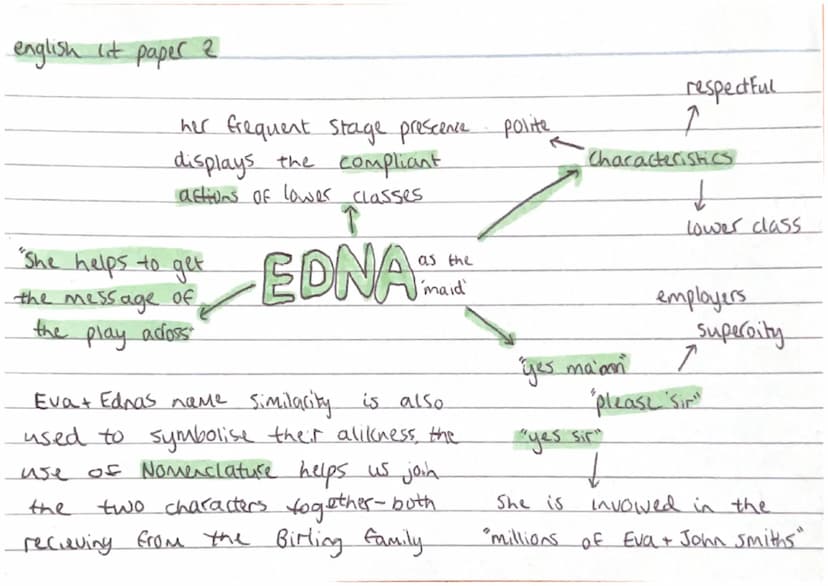 english lit paper 2
her frequent stage prescence
displays the compliant
actions of lower classes
polite
respectful
characteristics
lower class
"She helps to get
the message of
the play across"
EDNA as the
'maid'
employers
superoity
"yes ma'am"
"please sir"
"yes sir"
Eva + Ednas name similarity is also
used to symbolise their alikness, the
use of Nomenclature helps us join
the two characters together - both
recieving from the Birling family
She is invowed in the
"millions of Eva + John smiths"